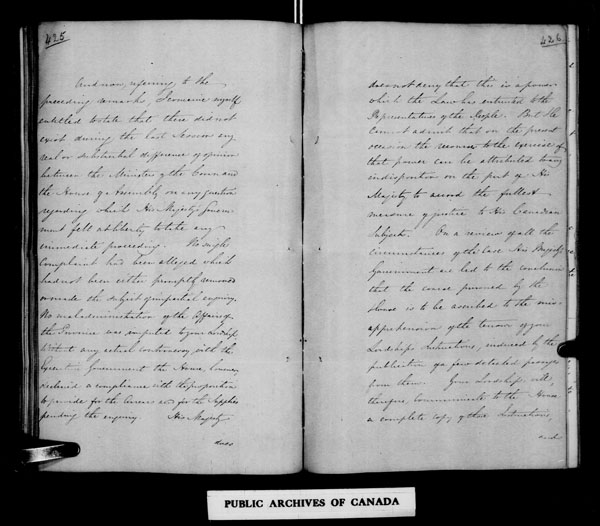 425
And now, referring to the
preceding remarks, I conceive myself
entitled to state that there did not
exist during the last Session any
real or substantial difference of opinion
between the Ministers of the Crown and
the House of Assembly on any question
regarding which His Majesty's Govern-
ment felt at liberty to take any
immediate proceeding. No single
Complaint had been alleged which
had not been either promptly removed
or made the subject of impartial enquiry.
No maladministration of the Affairs of
the Province was imputed to your Lordship.
Without any actual controversy with the
Executive Government the House, however,
declined a compliance with the proposition
to provide for the Arrears and for the Supplies
pending the enquiry His Majesty
does
426
does not deny that this is a power
which the Law has entrusted to the
Representatives of the People. But He
cannot admit that on the present
occasion the recourse to the exercise of
that power can be attributed to any
indisposition on the part of His
Majesty to accord the fullest
measure of justice to His Canadian
Subjects. On a review of all the
circumstances of the case His Majesty's
Government are led to the conclusion
that the course pursued by the
House is to be ascribed to the mis-
apprehension of the tenor of your
Lordship's Instructions, induced by the
publication of a few detached passages
from them. Your Lordship will,
therefore, communicate to the House
a complete copy of those Instructions,
and
PUBLIC ARCHIVES OF CANADA